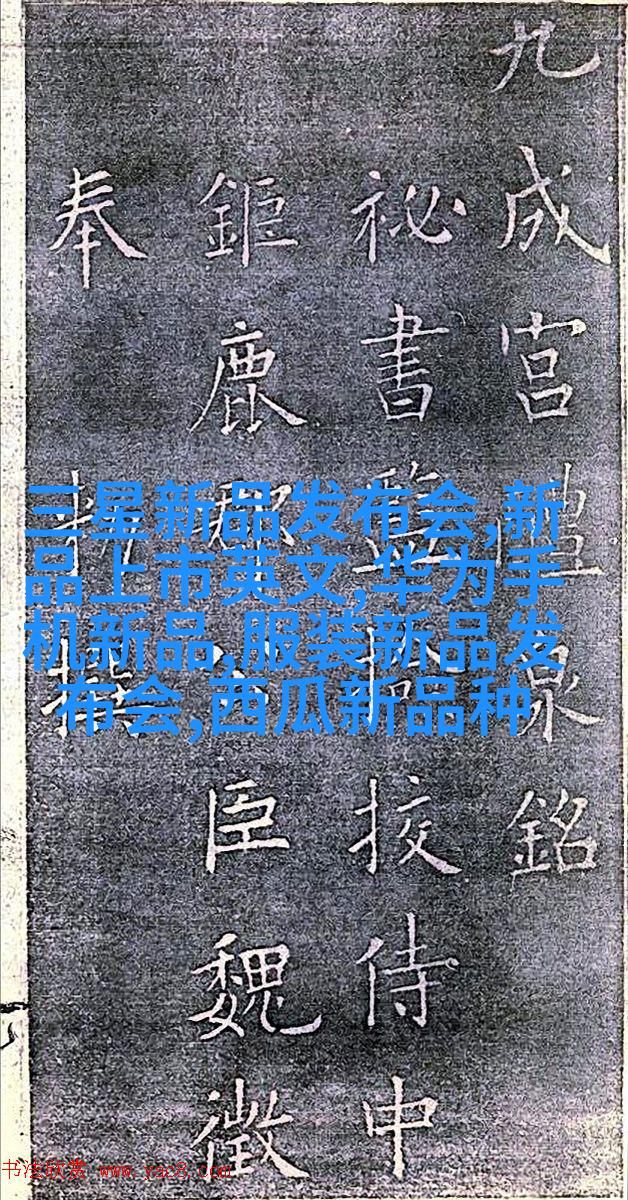 九成宮醴泉銘
祕書監撿挍侍中
鉅鹿郡公臣魏徵
奉勑撰
三星新品发布会,新
品上市英文,华为手
机新品,服装新品发
布会,西瓜新品种
书法欣赏 www.yac8.com